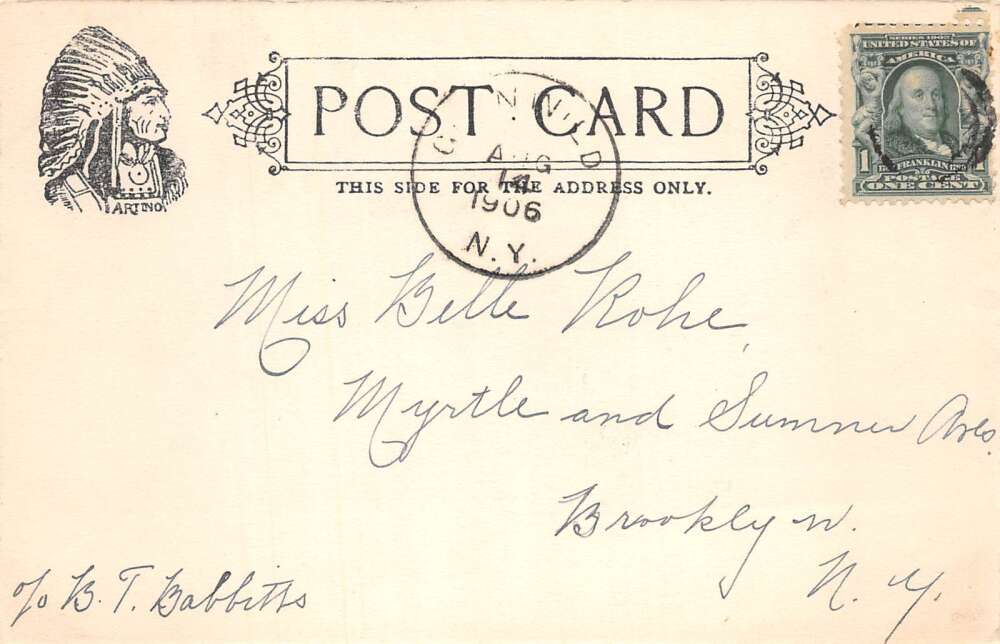 POST CARD
THIS SIDE FOR THE ADDRESS ONLY.
ARTINO
AUG
14
1906
N.Y.
SERIES 1902
UNITED STATES OF
AMERICA
FRANKLIN
POSTAGE
1 ONE CENT
Miss Belle Kohe,
Myrtle and Sumner Aves
Brooklyn.
N. Y.
c/o B. T. Babbitts